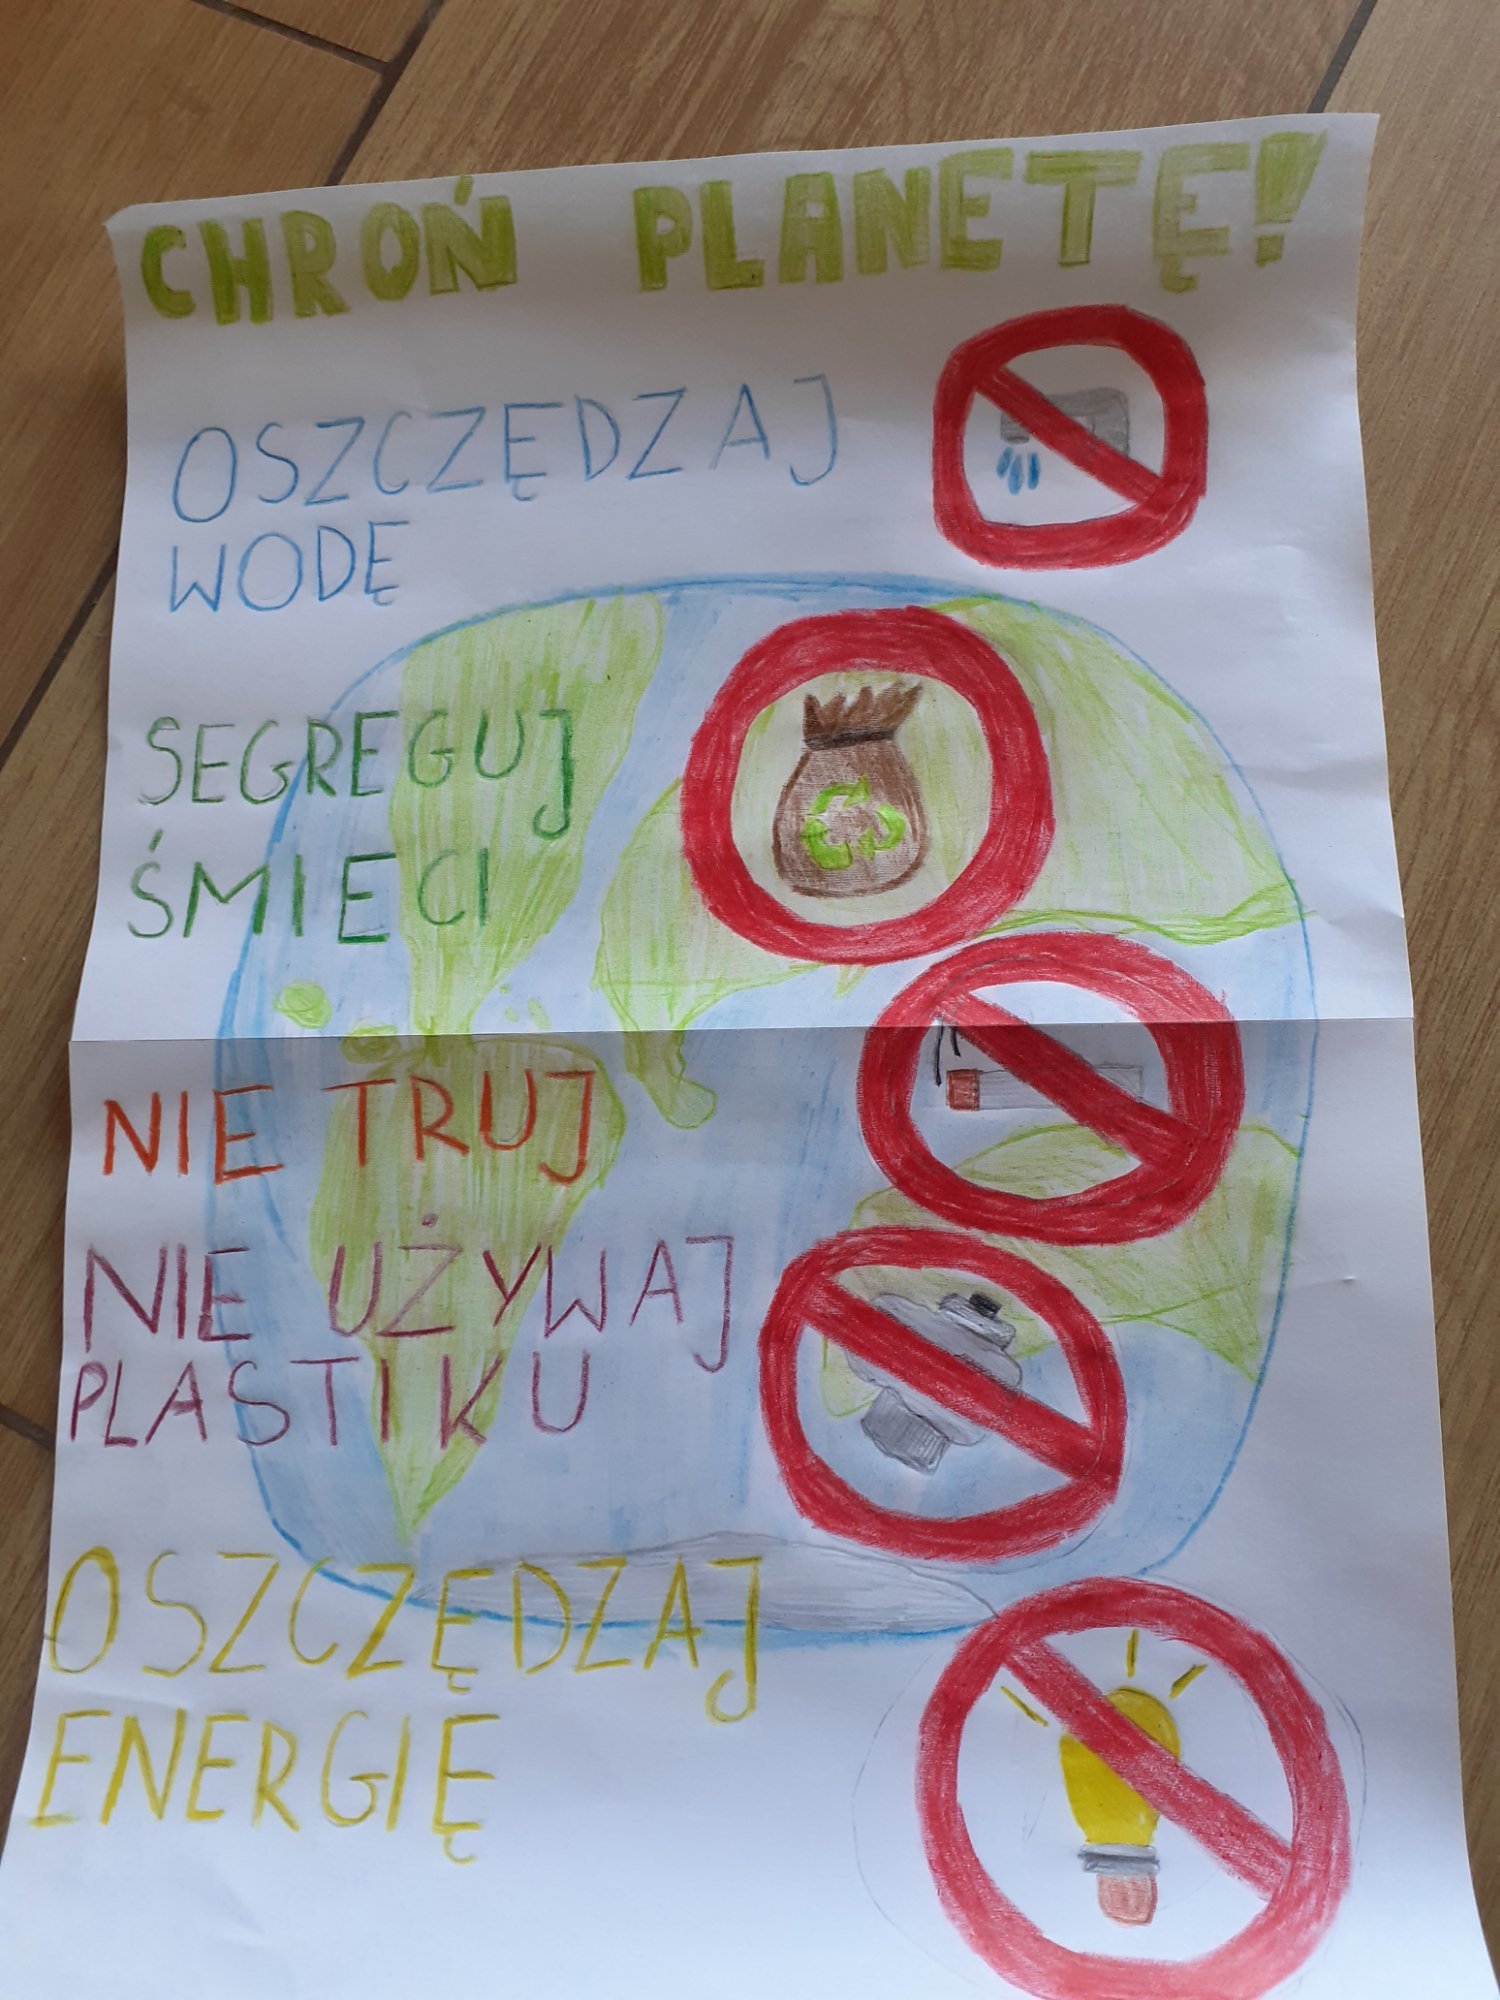 CHROŃ PLANETĘ!
OSZCZĘDZAJ
WODĘ
SEGREGUJ
ŚMIECI
NIE TRUJ
NIE UŻYWAJ
PLASTIKU
OSZCZĘDZAJ
ENERGIĘ